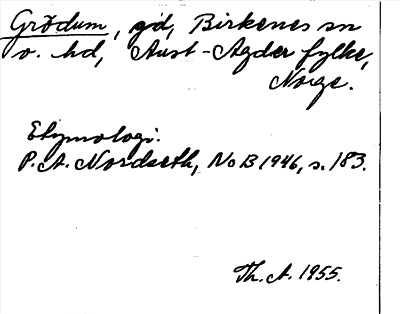 Grödum, gd, Birkenes sn
o. hd, Aust-Agder fylke,
Norge.
Etymologi.
P. A. Nordseth, NoB 1946, s. 183.
Th. A. 1955.